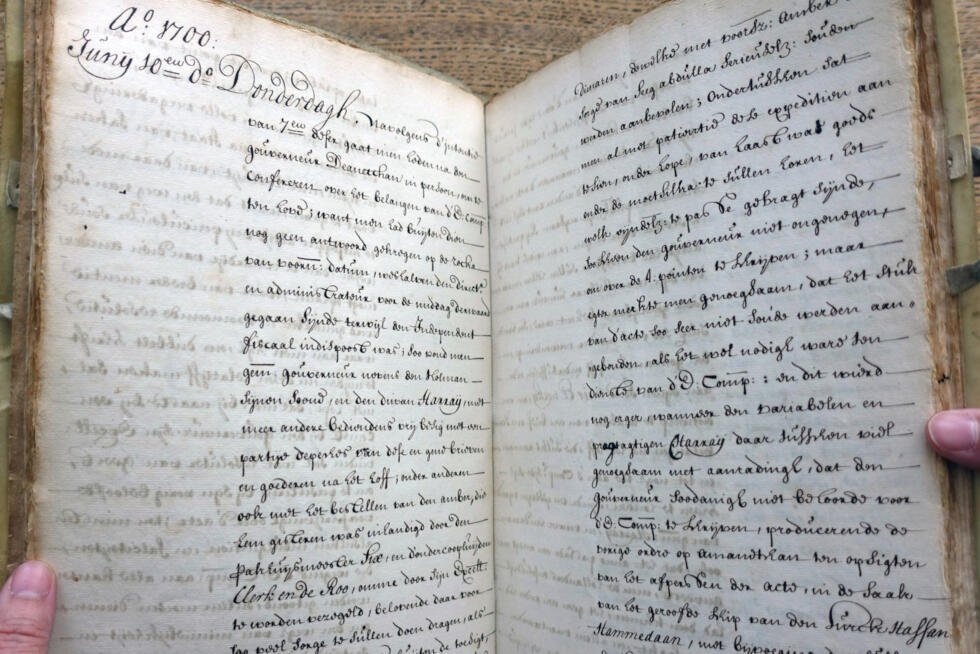 Aº. 1700:
Junÿ 10en dº Donderdagh, navolgens d'intentie
van 7en deser, gaat men heden na den
gouverneur Deanetchan in persoon, om te
confereren over het belangen van d'E: Comp:
ten hove; want men had buÿten dien
nog geen antwoord gekregen op de rocka
van voorn: datum, weshalven den direct.r
en administrateur voor de middag derwaard
gegaan sÿnde terwijl den Independent
fiscaal indispoost was; soo vond men
gem: gouverneur nevens den
sÿnen soond, en den divan Harraÿ, met
meer andere bediendens vrÿ besig met een
partÿe depeches van dese en gene brieven
en goederen na het hoff; onder anderen
ook met het bestellen van den amber, die
hem gisteren was inhandigt door den
Pakhuÿsmeester Six, en d'ondercoopluÿden
Clerk en de Roo, omme door sÿn Excell:
te worden versegeld, belovende daar voor
soo veel sorge te sullen doen dragen, als
dienaren, dewelke met voorsz: amber
Sege van Seg abdulla serieuselz: souden
worden aanbevolen; Ondertusschen sat
men al met patientie dese expeditie aan
te sien, onder hope, van haast wat goeds
onder de moetsilka: te sullen horen, het
welk eÿndelz: te pas gebragt sÿnde,
soo scheen den gouverneur niet ongenegen,
om over de 4. pointen te schrÿven; maar
egter merkte men genoegsaam, dat het stuk
van d'acte, soo seer niet soude werden aan-
gebonden, als het wel nodigh ware ten
dienste van d'E: Comp: : en dit wierd
nog erger, wanneer den variabelen en
pragtigen Harraÿ daar tusschen viel
genoegsaam met aanradingh, dat den
gouverneur soodanigh niet behoorde voor
d'E: Comp: te schrÿven, producerende de
vorige ordre op amanetchan ten opsigten
van het afperssen der acte, in de saak
van het geroofde schip van den Turck Hassan
Hammedaan, met bÿvoeging